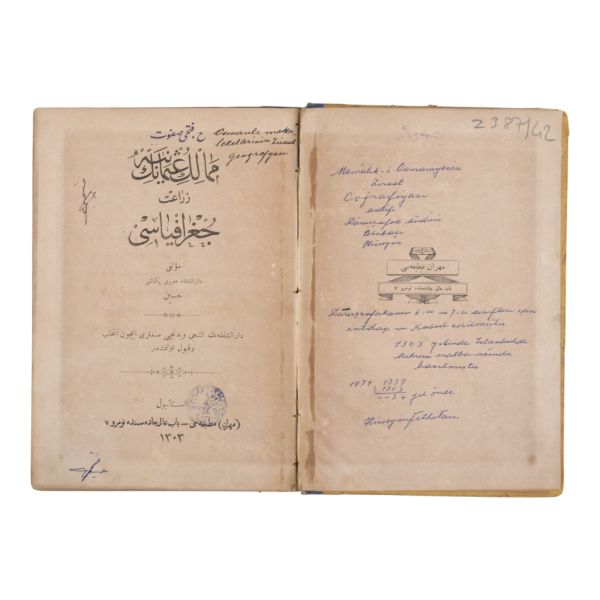 ح. فتحی صفوت
Osmanlı
leketlerinin Ziraat
geografyası
ممالك عثمانیه‌نك
زراعت
جغرافیاسی
مؤلفی
دارالشفقه مدیری بیكباشی
حسین
دارالشفقه‌نك آلتنجی ویدنجی صنفلری ایچون انتخاب
وقبول اولنمشدر
استانبول
(مهران) مطبعه‌سی — باب عالی جاده‌سنده نومرو ٧
١٣٠٣
2387/42
Memalik-i Osmaniyenin
Ziraat
Coğrafiyası
Darüşşafaka Müdürü
Binbaşı
Hüseyin
مهران مطبعه‌سی
باب عالی جاده‌سنده نومرو ٧
Darüşşafakanın 6-ıı ve 7-ci sınıfları için
intihap ve Kabul edilmiştir
1303 yılında İstanbulda
Mihran matbaasında
basılmıştır
1971 1337
1303
34 yıl önce